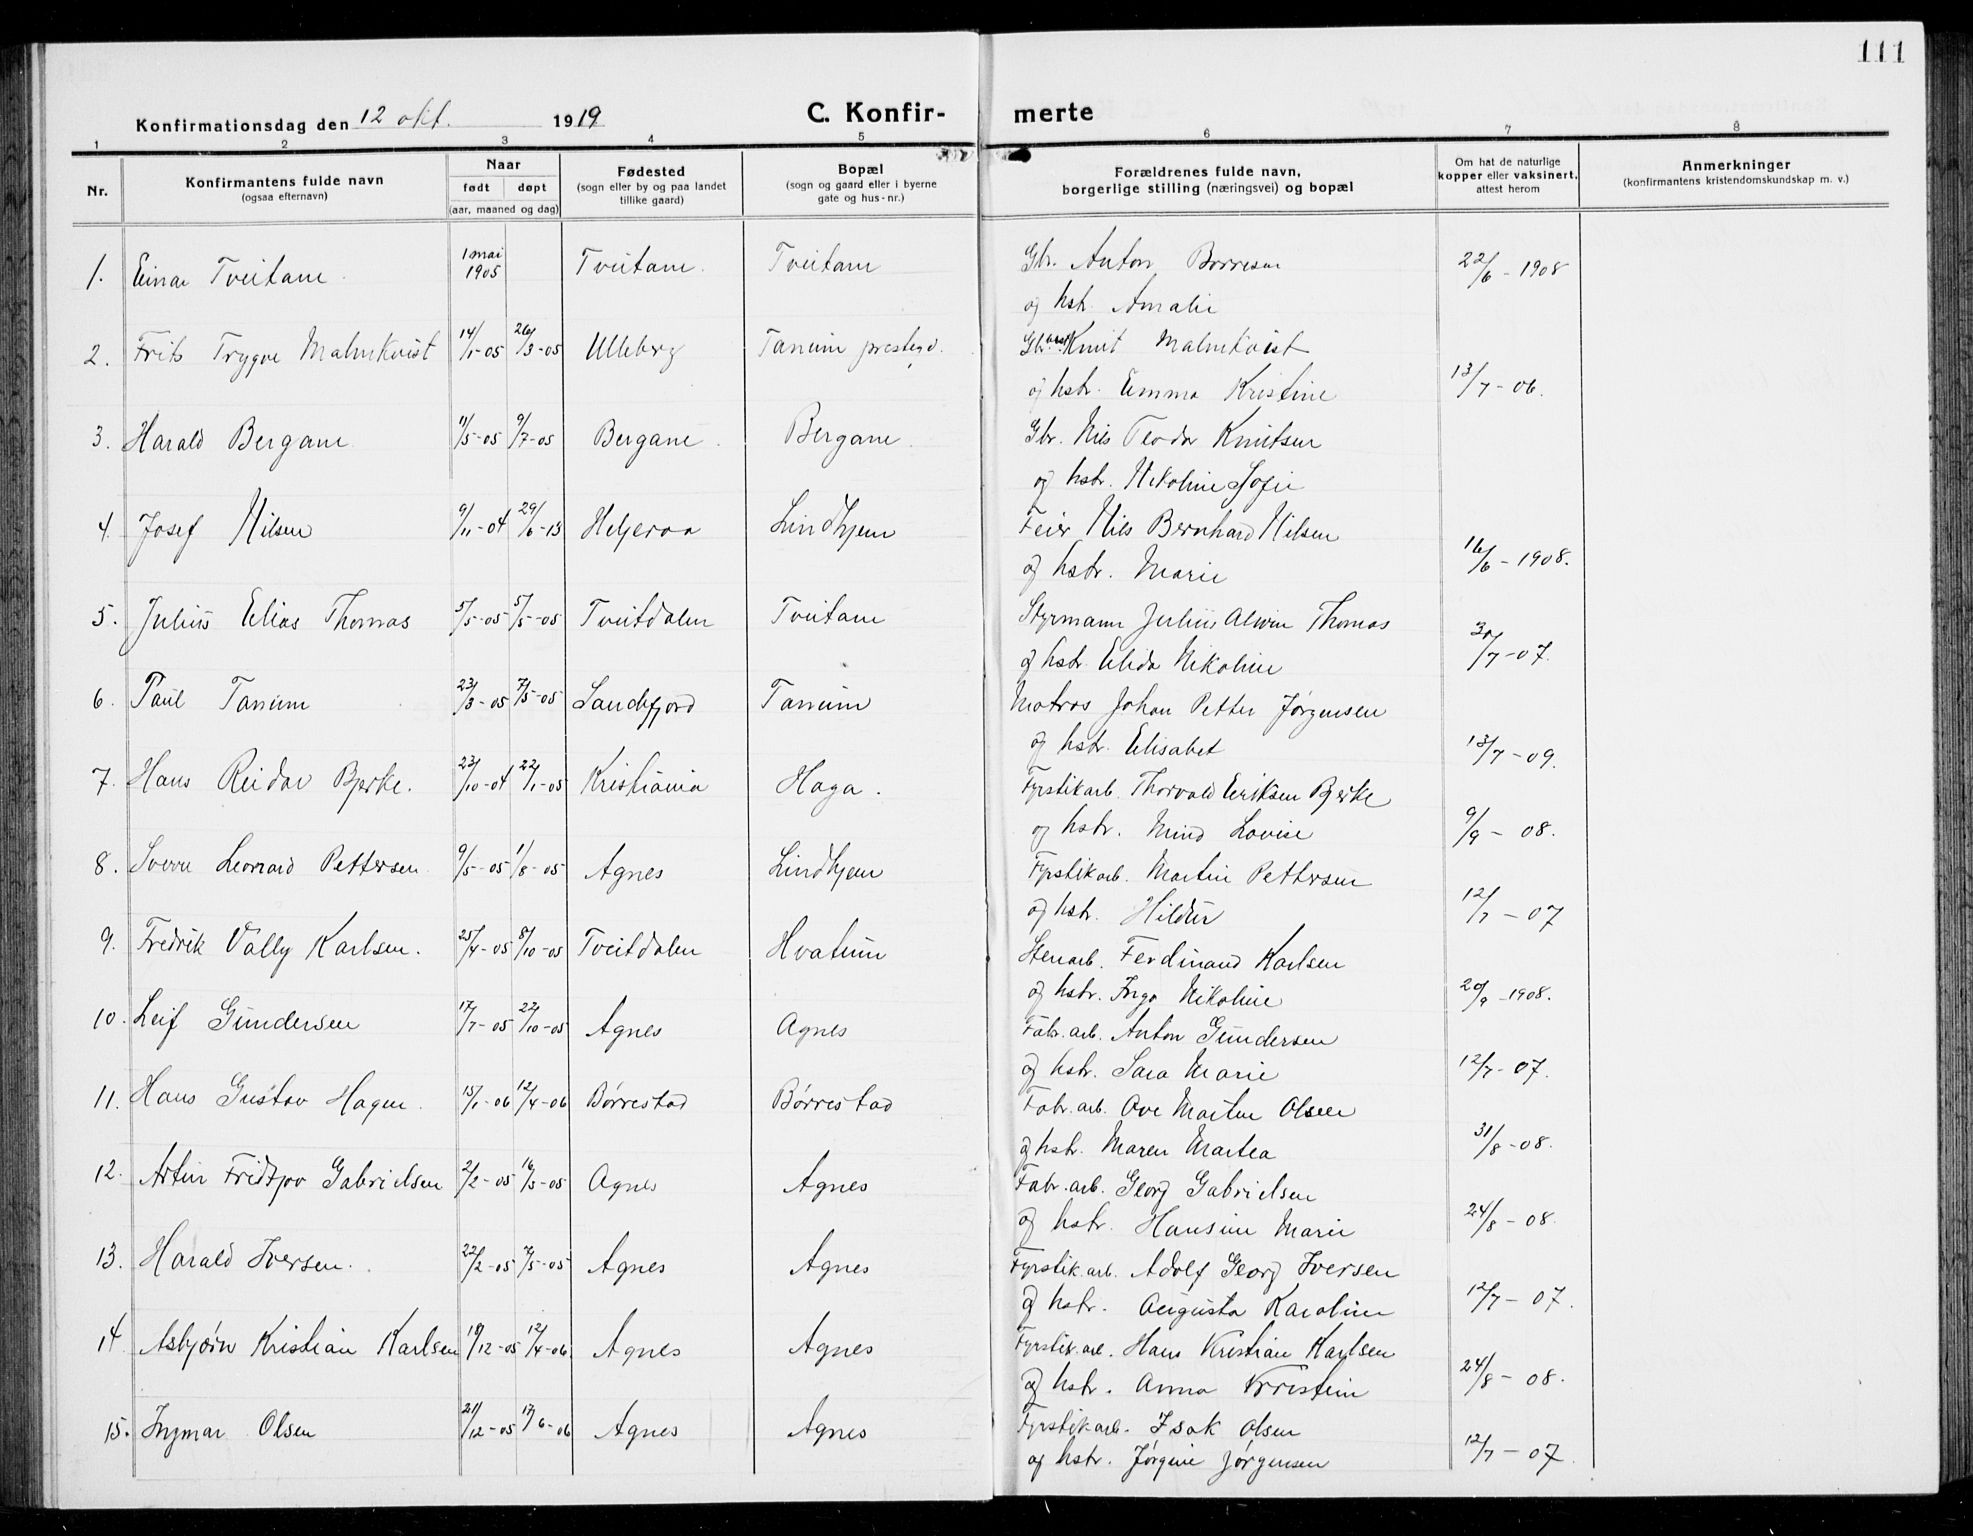 111
Konfirmationsdag den 12 okt. 1919 C. Konfirmerte
1 2 3 4 5 6 7 8
Nr.
Konfirmantens fulde navn
(ogsaa efternavn)
Naar
født døpt
(aar, maaned og dag)
Fødested
(sogn eller by og paa landet
tillike gaard)
Bopæl
(sogn og gaard eller i byerne
gate og hus-nr.)
Forældrenes fulde navn,
borgerlige stilling (næringsvei) og bopæl
Om hat de naturlige
kopper eller vaksinert,
attest herom
Anmerkninger
(konfirmantens kristendomskundskap m. v.)
1. Einar Tveitane. 1 mai 1905 Tveitane. Tveitane Gbr. Anton Borresen 22/6 - 1908
og hstr. Amalie
2. Frits Trygve Malmkvist 14/1-05 26/3-05 Ulleberg Tanum prestegd. Knut Malmkvist
og hstr. Emma Kristine 13/7-06.
3. Harald Bergane 11/5-05 9/7-05 Bergane. Bergane. Gbr. Nils Teodor Knutsen
og hstr. Nikoline Sofie
4. Josef Nilsen 9/11-04 29/6-13 Helgeroa Lindhjem Feier Nils Bernhard Nilsen
og hstr. Marie 16/6-1908.
5. Julius Elias Thomas 5/5-05 5/5-05 Tveitdalen Tveitane Styrmann Julius Alwin Thomas
og hstr. Elida Nikoline 30/7-07.
6. Paul Tanum 23/3-05 7/5-05 Sandefjord Tanum Matros Johan Petter Jørgensen
og hstr. Elisabet 13/7-09.
7. Hans Reidar Bjerke. 23/10-04 22/1-05 Kristiania Haga. Fyrstikarb. Thorvald Eriksen Bjerke
og hstr. Mina Lovise 9/9 - 08.
8. Sverre Leonard Pettersen 9/5-05 1/8-05 Agnes Lindhjem Fyrstikarb. Martin Pettersen
og hstr. Hildur 12/7 - 07
9. Fredrik Vally Karlsen. 25/4-05 8/10-05 Tveitdalen Hvatum Stenarb. Ferdinand Karlsen
og hstr. Inga Nikoline 20/9-1908.
10. Leif Gundersen 17/7-05 22/10-05 Agnes Agnes Fabr. arb. Anton Gundersen
og hstr. Sara Marie 12/7-07.
11. Hans Gustav Hagen. 15/1-06 12/4-06 Børrestad Børrestad Fabr. arb. Ove Martin Olsen
og hstr. Maren Martea 31/8-08.
12. Artur Fridtjov Gabrielsen 2/2-05 16/5-05 Agnes Agnes Fabr. arb. Georg Gabrielsen
og hstr. Hansine Marie 24/8-08.
13. Harald Iversen. 22/2-05 7/5-05 Agnes Agnes Fyrstik. arb. Adolf Georg Iversen
og hstr. Augusta Karoline 12/7 - 07.
14 Asbjørn Kristian Karlsen 18/12-05 12/4-06. Agnes Agnes Fyrstik. arb. Hans Kristian Karlsen
og hstr. Anna Kristine 24/8 - 08.
15. Ingmar Olsen 21/12-05 17/6-06 Agnes Agnes Fyrstikarb. Isak Olsen
og hstr. Jørgine Jørgensen 12/7 - 07.